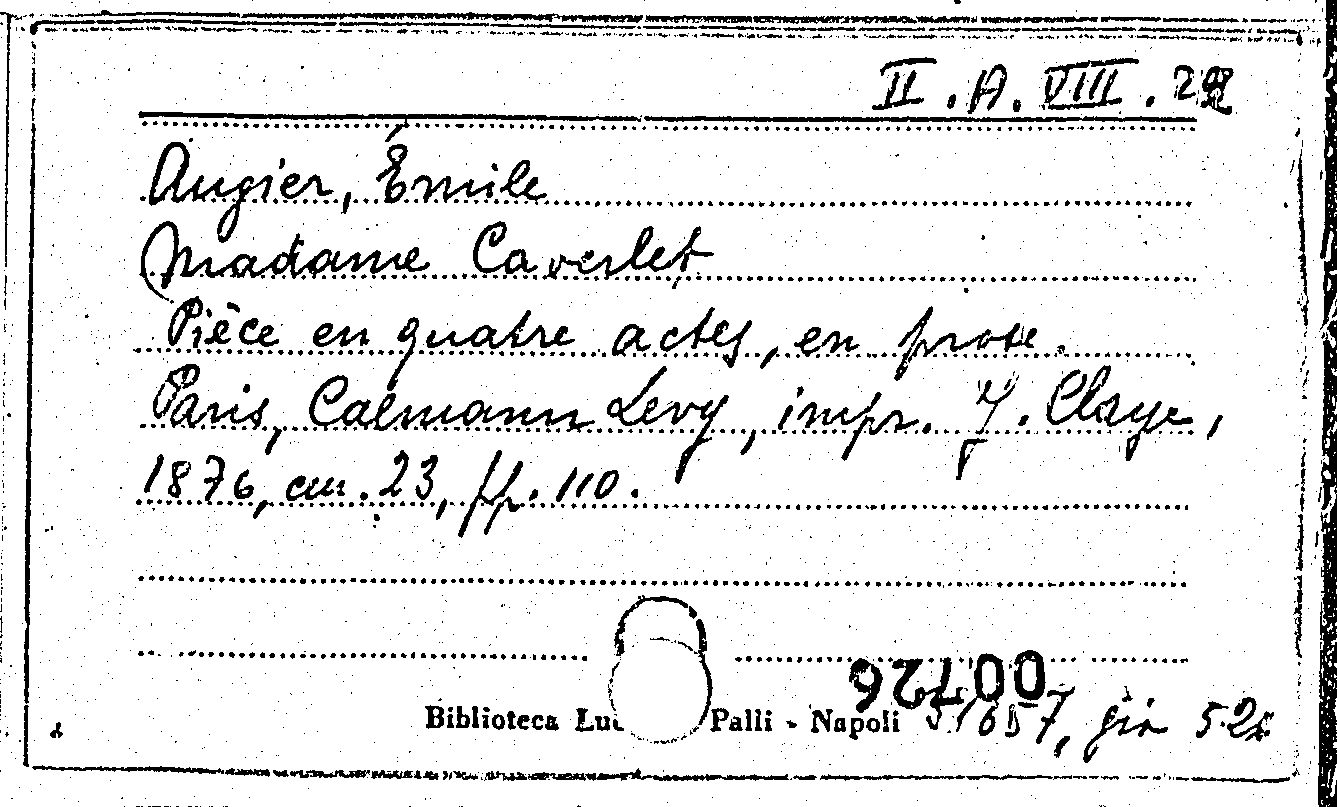 II. A. VIII.
Augier, Émile
Madame Caverlet
Pièce en quatre actes, en prose.
Paris, Calmann Levy, impr. J. Claye,
1876, cm. 23, pp. 110.
00726
Biblioteca Palli - Napoli già